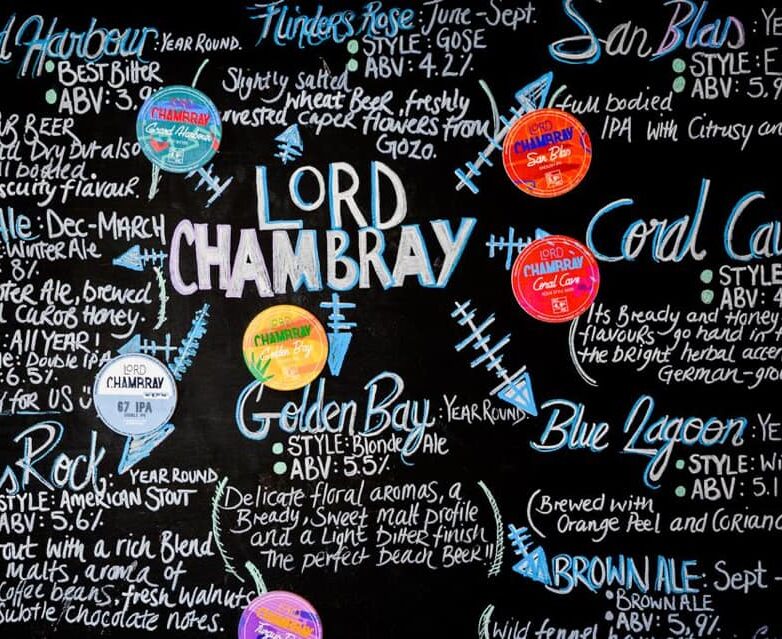 d Harbour: YEAR ROUND.
BEST Bitter
ABV: 3.9
UR BEER
Dry but also
ll bodied.
scuity flavour.
Ale: DEC-MARCH
: WINTER Ale
: 8%
ter Ale, brewed
CAROB HONEY.
: All YEAR!
: Double IPA
: 6.5%
Y FOR US
s Rock: YEAR ROUND
STYLE: AMERICAN STOUT
ABV: 5.6%
out with a rich Blend
MALTS, aroma of
coffee beans, fresh walnuts
Subtle chocolate notes.
Flinders Rose: June-Sept.
STYLE: GOSE
ABV: 4.2%
Slightly salted
wheat Beer, freshly
rvested caper flowers from
GOZO.
LORD
CHAMBRAY
Golden Bay: YEAR ROUND.
STYLE: Blonde Ale
ABV: 5.5%
Delicate floral aromas, a
Bready, Sweet malt profile
and a Light Bitter finish
The perfect Beach Beer!!
San Blas: YE
STYLE: E
ABV: 5,
full bodied
IPA with Citrusy an
Coral Ca
STYLE
ABV:
Its Bready and Honey
flavours go hand in
the bright herbal acce
German-gro
Blue Lagoon: YE
STYLE: Wi
ABV: 5.1
Brewed with
Orange Peel and Corian
BROWN ALE: Sept
BROWN ALE
ABV: 5,9%
Wild fennel
LORD
CHAMBRAY
Grand Harbour
LORD
CHAMBRAY
San Blas
LORD
CHAMBRAY
Coral Cave
LORD
CHAMBRAY
Golden Bay
LORD
CHAMBRAY
67 IPA
CHAMBRAY